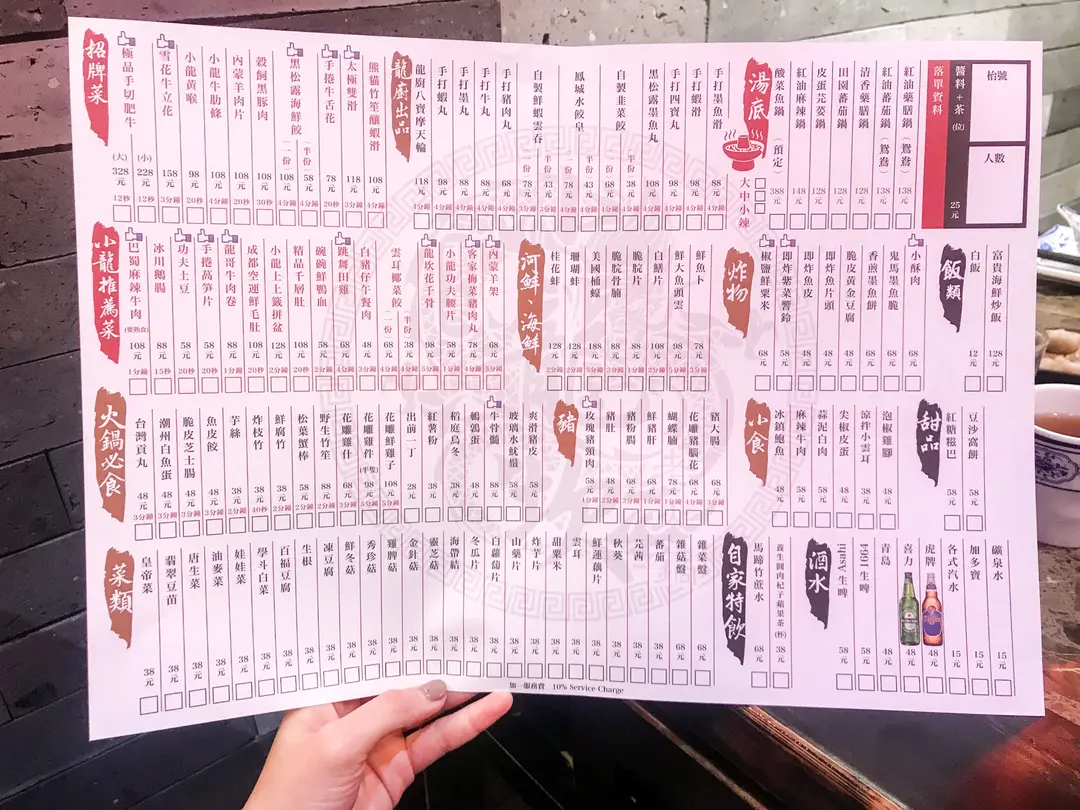 招牌菜
極品手切肥牛 (大) 328元 12秒 (小) 228元 12秒
雪花牛立花 158元 3分鐘
小龍黃喉 98元 20秒
小龍牛肋條 108元 4分鐘
內蒙羊肉片 108元 20秒
穀飼黑豚肉 108元 30秒
黑松露海鮮餃 一份 108元 4分鐘 半份 58元 4分鐘
手捲牛舌花 78元 20秒
太極雙滑 118元 3分鐘
熊貓竹笙釀蝦滑 108元 4分鐘
龍廚出品
龍廚八寶摩天輪 118元 4分鐘
手打蝦丸 98元
手打墨丸 88元
手打牛丸 88元
手打豬肉丸 68元
自製鮮蝦雲吞 一份 78元 半份 43元
鳳城水餃皇 一份 78元 半份 43元
自製韭菜餃 一份 68元 半份 38元
黑松露墨魚丸 108元
手打四寶丸 98元
手打蝦滑 98元
手打墨魚滑 88元
湯底
大中小辣
酸菜魚鍋 (預定) 388元
紅油麻辣鍋 148元
皮蛋芫荽鍋 128元
田園蕃茄鍋 128元
清香藥膳鍋 128元
紅油蕃茄鍋 (鴛鴦) 138元
紅油藥膳鍋 (鴛鴦) 138元
落單資料
醬料+茶(位) 25元
枱號
人數
小龍推薦菜
巴蜀麻辣牛肉 (要熟食) 108元 1分鐘
冰川鵝腸 88元 15秒
功夫土豆 58元 20秒
手捲萵笋片 58元 20秒
龍哥牛肉卷 88元 1分鐘
成都空運鮮毛肚 108元 20秒
小龍上上籤拼盆 128元 2分鐘
精品千層肚 108元 20秒
碗碗鮮鴨血 58元 2分鐘
跳舞田雞 68元 2分鐘
白豬仔午餐肉 48元 3分鐘
雲耳椰菜餃 一份 68元 4分鐘 半份 38元 4分鐘
龍坎花千骨 98元 5分鐘
小龍功夫腰片 58元 1分鐘
客家梅菜豬肉丸 78元 3分鐘
內蒙羊架 68元 5分鐘
河鮮、海鮮
桂花蚌 128元 2分鐘
珊瑚蚌 128元 2分鐘
美國桶蠔 188元 3分鐘
脆脘骨腩 88元 5分鐘
脆脘片 88元 2分鐘
白鱔片 108元 5分鐘
鮮大魚頭雲 98元
鮮魚卜 78元 3分鐘
炸物
椒鹽鮮粟米 68元
即炸紫菜響鈴 58元
即炸魚皮 48元
即炸魚片頭 48元
脆皮黃金豆腐 48元
香煎墨魚餅 68元
鬼馬墨魚脆 48元
小酥肉 68元
飯類
白飯 12元
富貴海鮮炒飯 128元
火鍋必食
台灣貢丸 48元 3分鐘
潮州白魚蛋 48元 3分鐘
脆皮芝士腸 48元 3分鐘
魚皮餃 48元 3分鐘
芋絲 38元 2分鐘
炸枝竹 38元 40秒
鮮腐竹 38元 2分鐘
松葉蟹棒 58元 2分鐘
野生竹笙 88元 2分鐘
花雕雞什 68元 5分鐘
花雕雞件 (半隻) 98元 5分鐘
花雕鮮雞子 108元 5分鐘
出前一丁 28元
紅薯粉 38元
稻庭烏冬 38元
鵪鶉蛋 48元
牛骨髓 88元
玻璃水魷鬚 58元
爽滑豬皮 58元
豬
玫瑰豬頸肉 58元
豬肚 48元
豬粉腸 68元
鮮豬肝 68元
蝴蝶腩 78元
花雕豬腦花 68元
豬大腸 68元
小食
冰鎮鮑魚 48元
麻辣牛肉 58元
蒜泥白肉 58元
尖椒皮蛋 48元
涼拌小雲耳 38元
泡椒雞腳 48元
甜品
紅糖糍巴 58元
豆沙窩餅 58元
菜類
皇帝菜 38元
翡翠豆苗 38元
唐生菜 38元
油麥菜 38元
娃娃菜 38元
學斗白菜 38元
百福豆腐 38元
生根 38元
凍豆腐 38元
鮮冬菇 38元
秀珍菇 38元
雞脾菇 38元
金針菇 38元
靈芝菇 38元
海帶結 38元
冬瓜片 38元
白蘿蔔片 38元
山藥片 38元
炸芋片 38元
甜粟米 38元
雲耳 38元
鮮蓮藕片 38元
秋葵 38元
芫茜 38元
蕃茄 38元
雜菇盤 68元
雜菜盤 68元
自家特飲
馬蹄竹蔗水 68元
養生圓肉杞子蘋果茶 (杯) 38元
酒水
Asahi 生啤 58元
1664 生啤 58元
青島 48元
喜力 48元
虎牌 48元
各式汽水 15元
加多寶 15元
礦泉水 15元
加一服務費 10% Service Charge